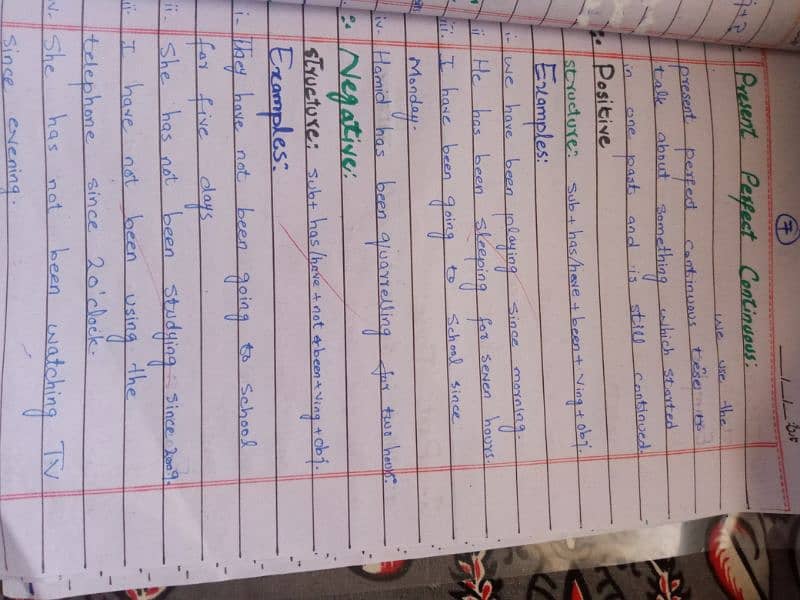 7
Present Perfect Continuous:
we use the
present perfect continuous tense to
talk about something which started
in one past and is still continued.
Positive
structure: sub + has/have + been + ving + obj.
Examples:
i- we have been playing since morning.
ii He has been sleeping for seven hours.
iii. I have been going to School since
Monday.
iv- Hamid has been quarrelling for two hours.
Negative:
structure: sub+ has/have + not + been + ving + obj.
Examples:
i- They have not been going to school
for five days
ii. She has not been studying since 2009.
iii- I have not been using the
telephone since 2 o'clock.
iv- She has not been watching TV
since evening.